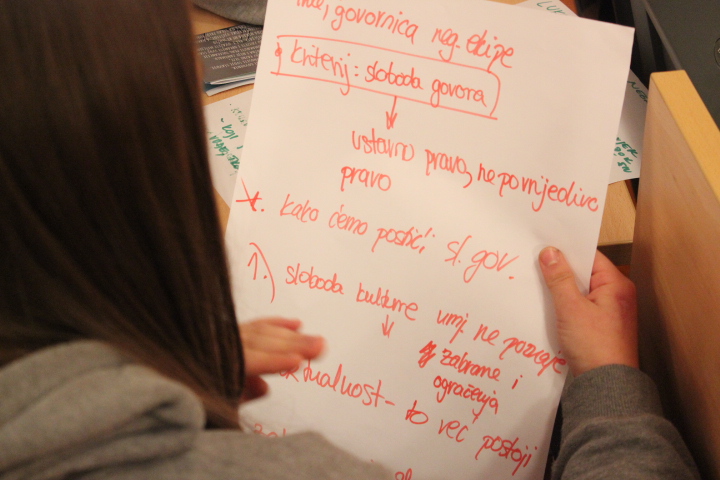 govornica neg. ekipe
kriterij: sloboda govora
ustavno pravo, nepovrijedivo
pravo
*. kako ćemo postići sl. gov.
1.) sloboda kulture umj. ne poznaje
zabrane i
ogračenja
aktualnost - to već postoji